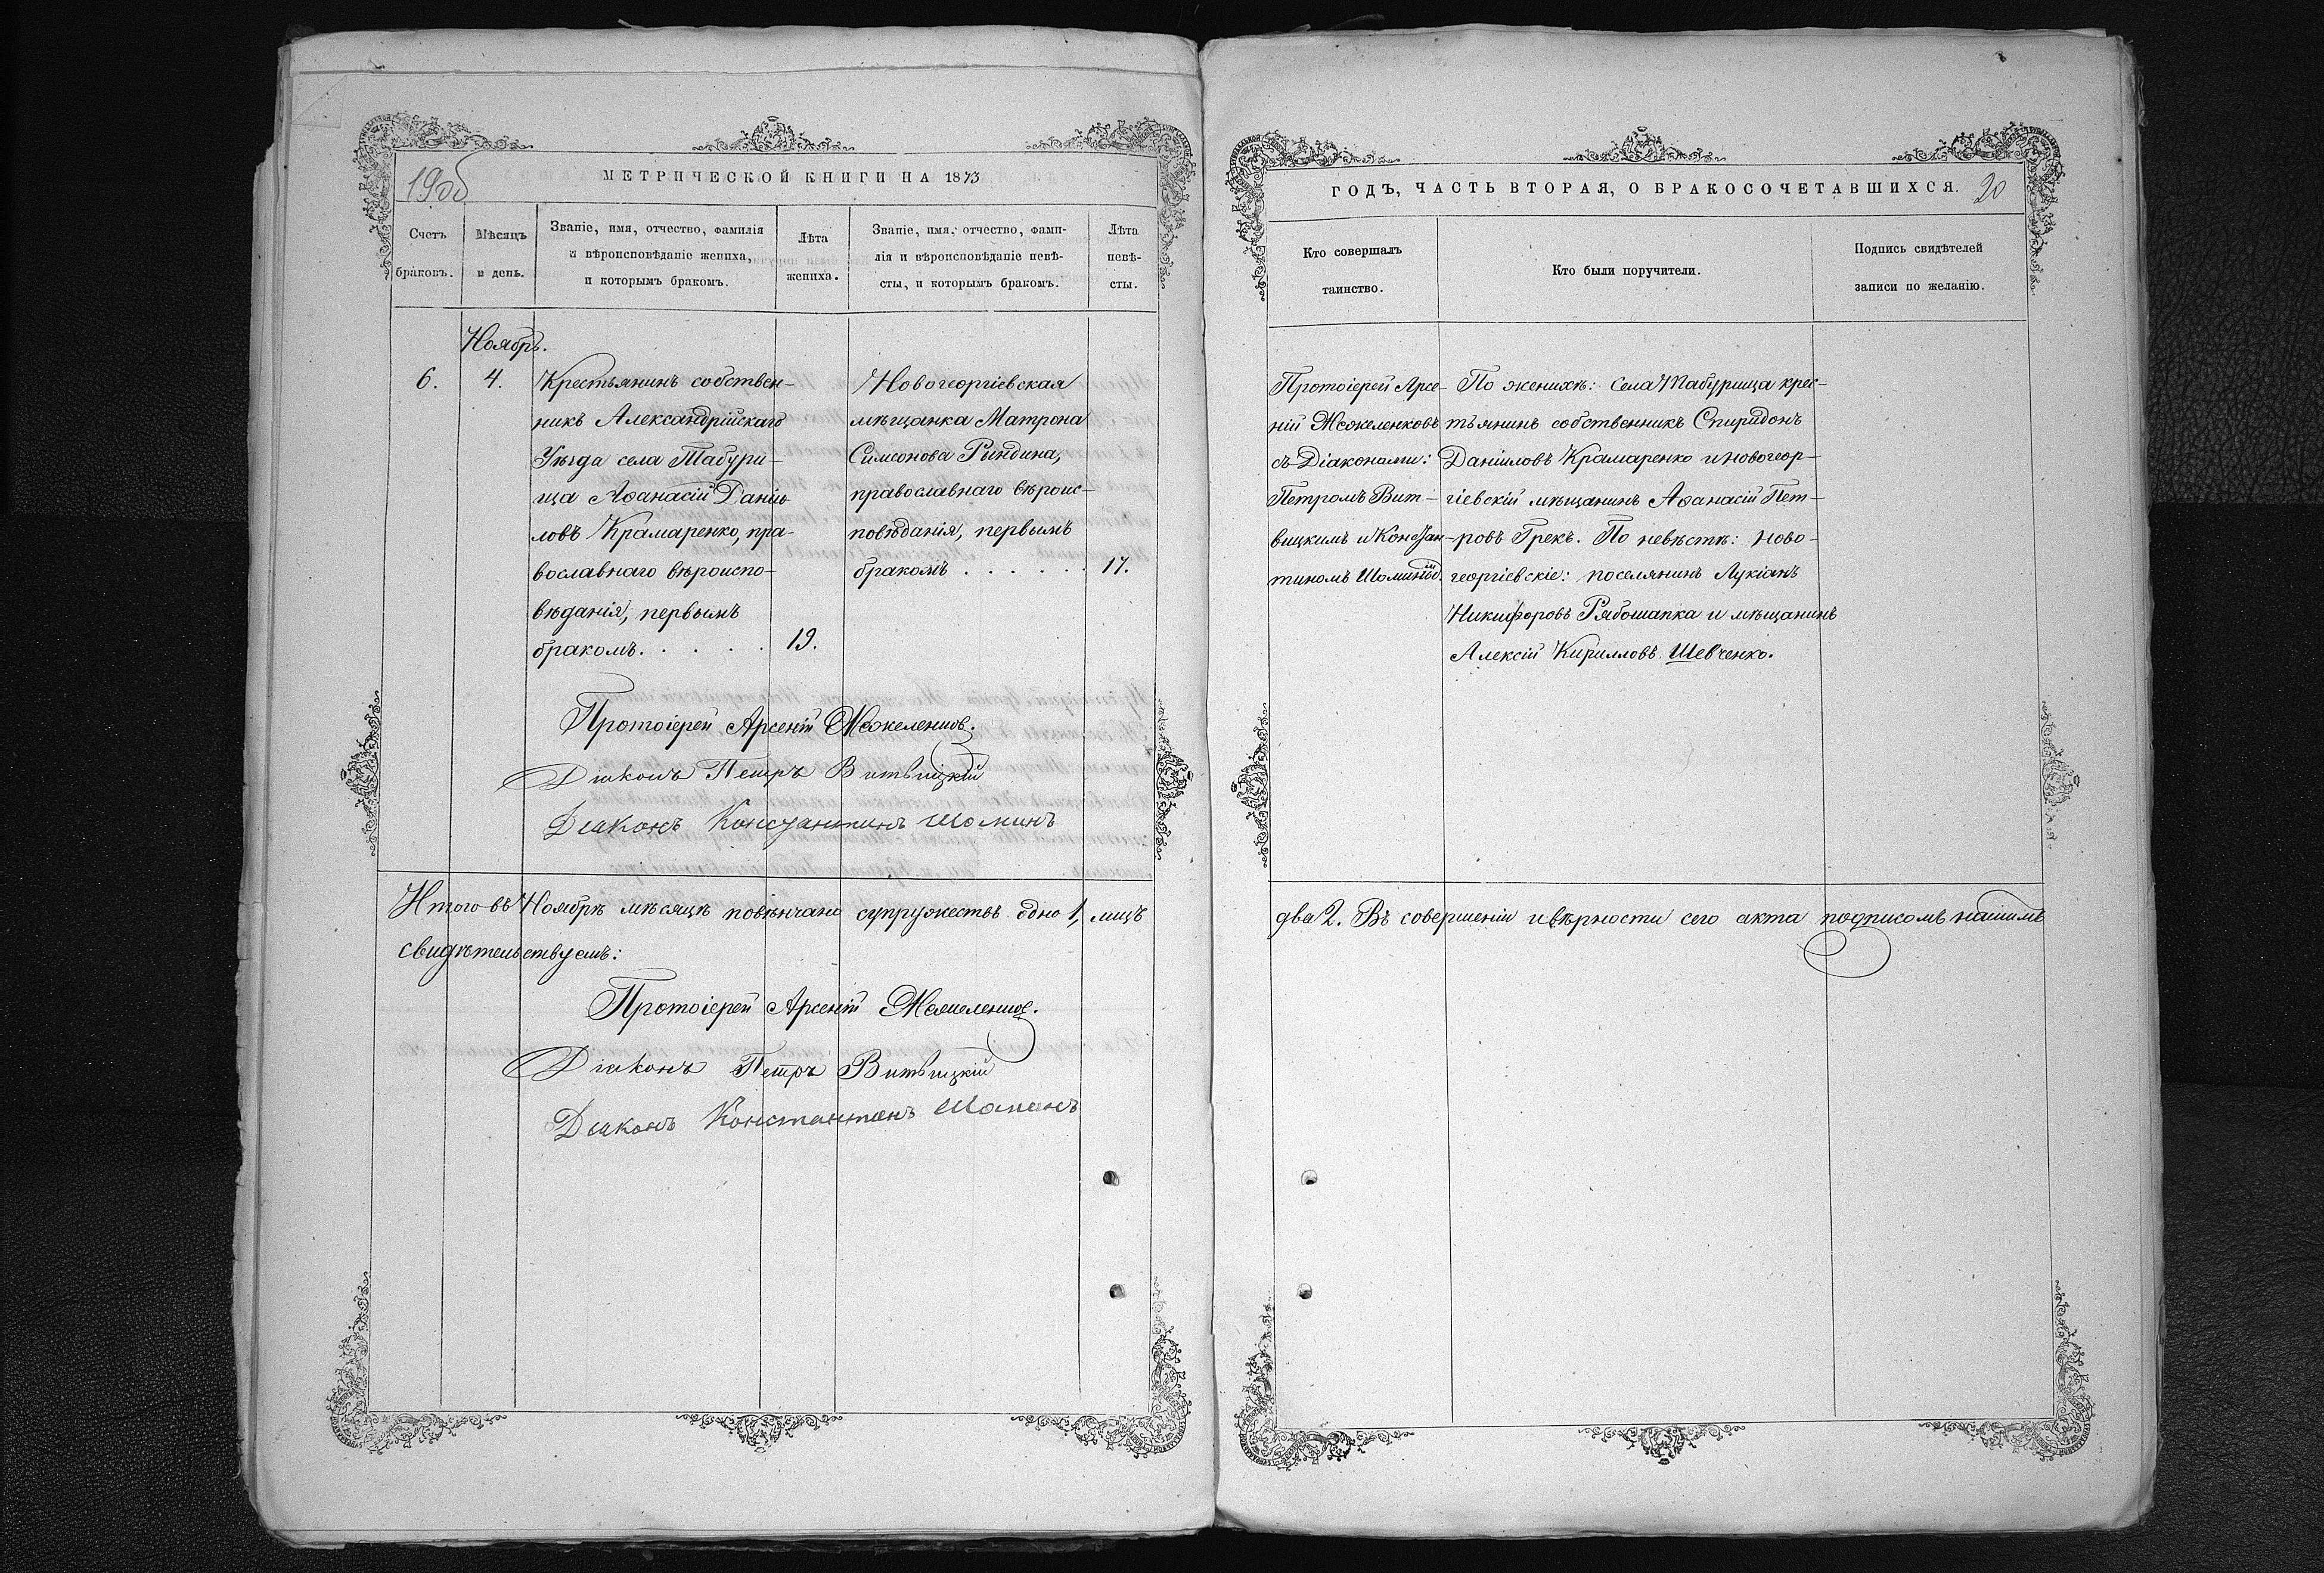 19об
МЕТРИЧЕСКОЙ КНИГИ НА 1873
Счетъ
браковъ.
Мѣсяцъ
и день.
Званіе, имя, отчество, фамилія
и вѣроисповѣданіе жениха,
и которымъ бракомъ.
Лѣта
жениха.
Званіе, имя, отчество, фами-
лія и вѣроисповѣданіе невѣ-
сты, и которымъ бракомъ.
Лѣта
невѣ-
сты.
Ноябрь.
6.
4.
Крестьянинъ собствен-
никъ Александрійскаго
Уѣзда села Табури-
ща Аѳанасій Даніи-
ловъ Крамаренко, пра-
вославнаго вѣроиспо-
вѣданія, первымъ
бракомъ. . . . . .
19.
Новогеоргіевская
мѣщанка Матрона
Симеонова Риндина,
православнаго вѣроис-
повѣданія, первымъ
бракомъ . . . . . .
17.
Протоіерей Арсеній
Діаконъ Петръ Витвицкій
Діаконъ Константинъ Шоминъ
Итого въ Ноябрѣ мѣсяцѣ повѣнчано супружествъ одно 1, лицъ
свидѣтельствуемъ:
Протоіерей Арсеній
Діаконъ Петръ Витвицкій
Діаконъ Константинъ Шоминъ
ГОДЪ, ЧАСТЬ ВТОРАЯ, О БРАКОСОЧЕТАВШИХСЯ.
20
Кто совершалъ
таинство.
Кто были поручители.
Подпись свидѣтелей
записи по желанію.
Протоіерей Арсе-
ній Межеленковъ
съ Діаконами:
Петромъ Вит-
вицкимъ и Констан-
тиномъ Шоминым.
По женихѣ: села Табурища крес-
тьянинъ собственникъ Спиридонъ
Даніиловъ Крамаренко и новогеор-
гіевскій мѣщанинъ Аѳанасій Пет-
ровъ Грекъ. По невѣстѣ: ново-
георгіевскіе: поселянинъ Лукіанъ
Никифоровъ Рябошапка и мѣщанинъ
Алексій Кирилловъ Шевченко.
два 2. Въ совершеніи и вѣрности сего акта подписомъ нашимъ